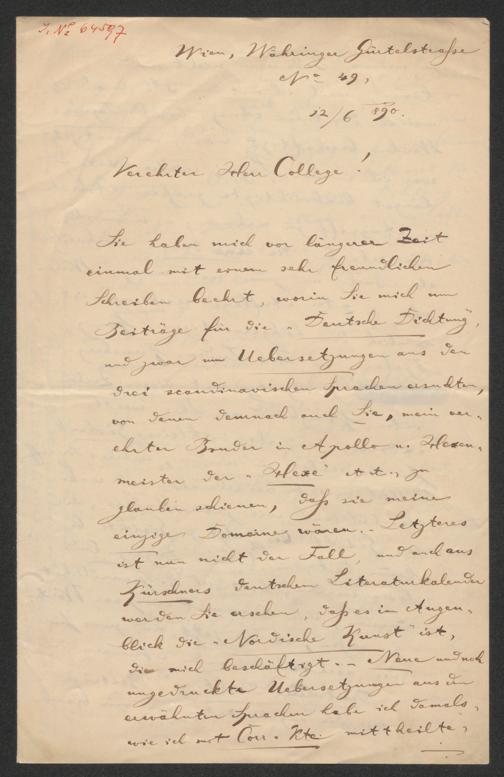 I. N. 64597
Wien, Währinger Gürtelstrasse
No 49,
12/6 890.
Verehrter Herr College!
Sie haben mich vor längerer Zeit
einmal mit einem sehr freundlichen
Schreiben beehrt, worin Sie mich um
Beiträge für die „Deutsche Dichtung",
und zwar um Uebersetzungen aus den
drei scandinavischen Sprachen ersuchten,
von denen demnach auch Sie, mein ver-
ehrter Bruder in Apollo u. Hexen-
meister der „Hexe" etc., zu
glauben schienen, daß sie meine
einzige Domaine wären. – Letzteres
ist nun nicht der Fall, und auch aus
Kürschners deutschem Literaturkalender
werden Sie ersehen, daß es im Augen-
blick die „Nordische Kunst" ist,
die mich beschäftigt. – Neue und noch
ungedruckte Uebersetzungen aus den
erwähnten Sprachen habe ich damals,
wie ich mit Corr.-Kte. mittheilte,